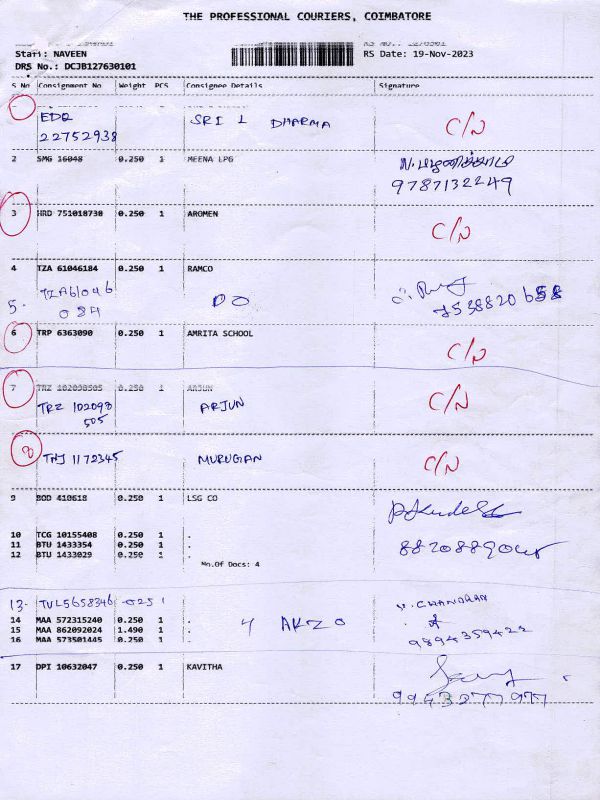 THE PROFESSIONAL COURIERS, COIMBATORE
Staff: NAVEEN
RS Date: 19-Nov-2023
DRS No.: DCJB127630101
S No Consignment No Weight PCS Consignee Details Signature
EDQ SRI L DHARMA C/N
22752938
2 SMG 16048 0.250 1 MEENA LPG
9787132249
3 HRD 751018730 0.250 1 AROMEN C/N
4 TZA 61046184 0.250 1 RAMCO
5. TZA61046 DO
6 TRP 6363090 0.250 1 AMRITA SCHOOL C/N
7 TRZ 102098505 0.250 1 ARJUN C/N
TRZ 102098 ARJUN
505
8 TNJ 1172345 MURUGAN C/N
9 BOD 410618 0.250 1 LSG CO
10 TCG 10155408 0.250 1 .
11 BTU 1433354 0.250 1 .
12 BTU 1433029 0.250 1 .
No.Of Docs: 4
13- TVL5658346 -025 1
14 MAA 572315240 0.250 1 .
15 MAA 862092024 1.490 1 . 4 AKZO
16 MAA 573501445 0.250 1 .
CHANDRAN
9894359422
17 DPI 10632047 0.250 1 KAVITHA
9943277977